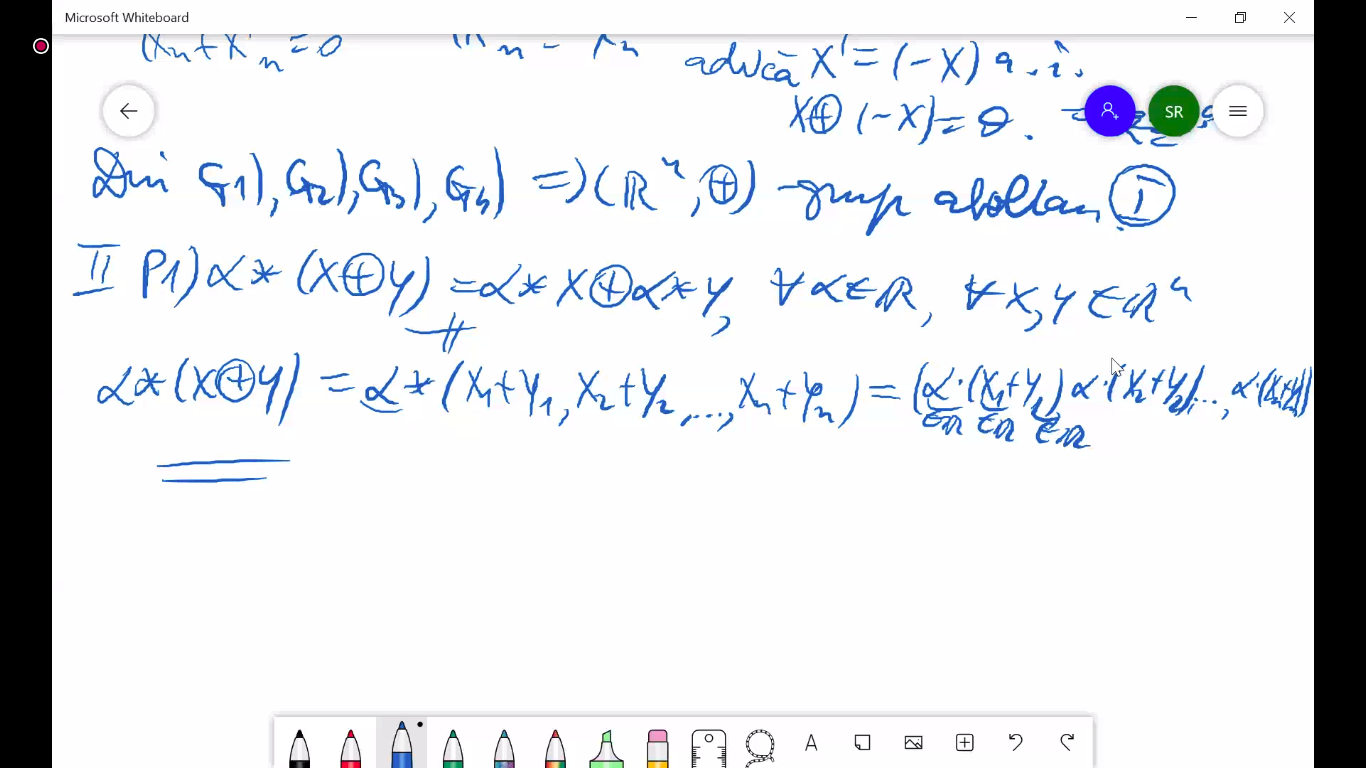 Microsoft Whiteboard
(xn+x'n=0
adică x'=(-x) a.î.
x⊕(-x)=θ.
SR
Din G1), G2), G3), G4) =) (ℝⁿ, ⊕) -grup abelian. Ⓘ
II P1) α*(x⊕y) = α*x⊕α*y, ∀α∈ℝ, ∀x,y∈ℝⁿ
α*(x⊕y) = α*(x1+y1, x2+y2, ..., xn+yn) = (α·(x1+y1) α·(x2+y2), ..., α·(xn+yn))
∈ℝ ∈ℝ ∈ℝ
A